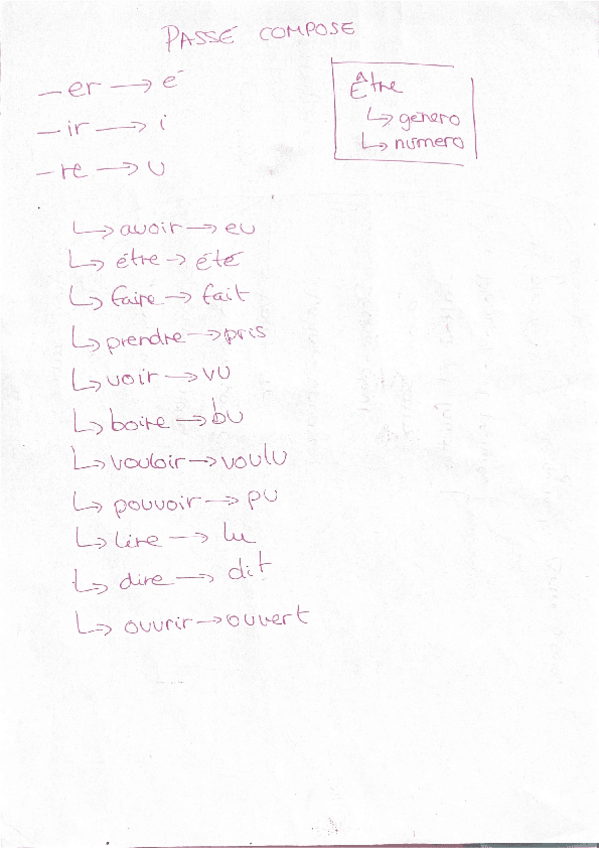 PASSÉ COMPOSE
– er → é
– ir → i
– re → u
Être
↳ género
↳ número
↳ avoir → eu
↳ être → été
↳ faire → fait
↳ prendre → pris
↳ voir → vu
↳ boire → bu
↳ vouloir → voulu
↳ pouvoir → pu
↳ lire → lu
↳ dire → dit
↳ ouvrir → ouvert